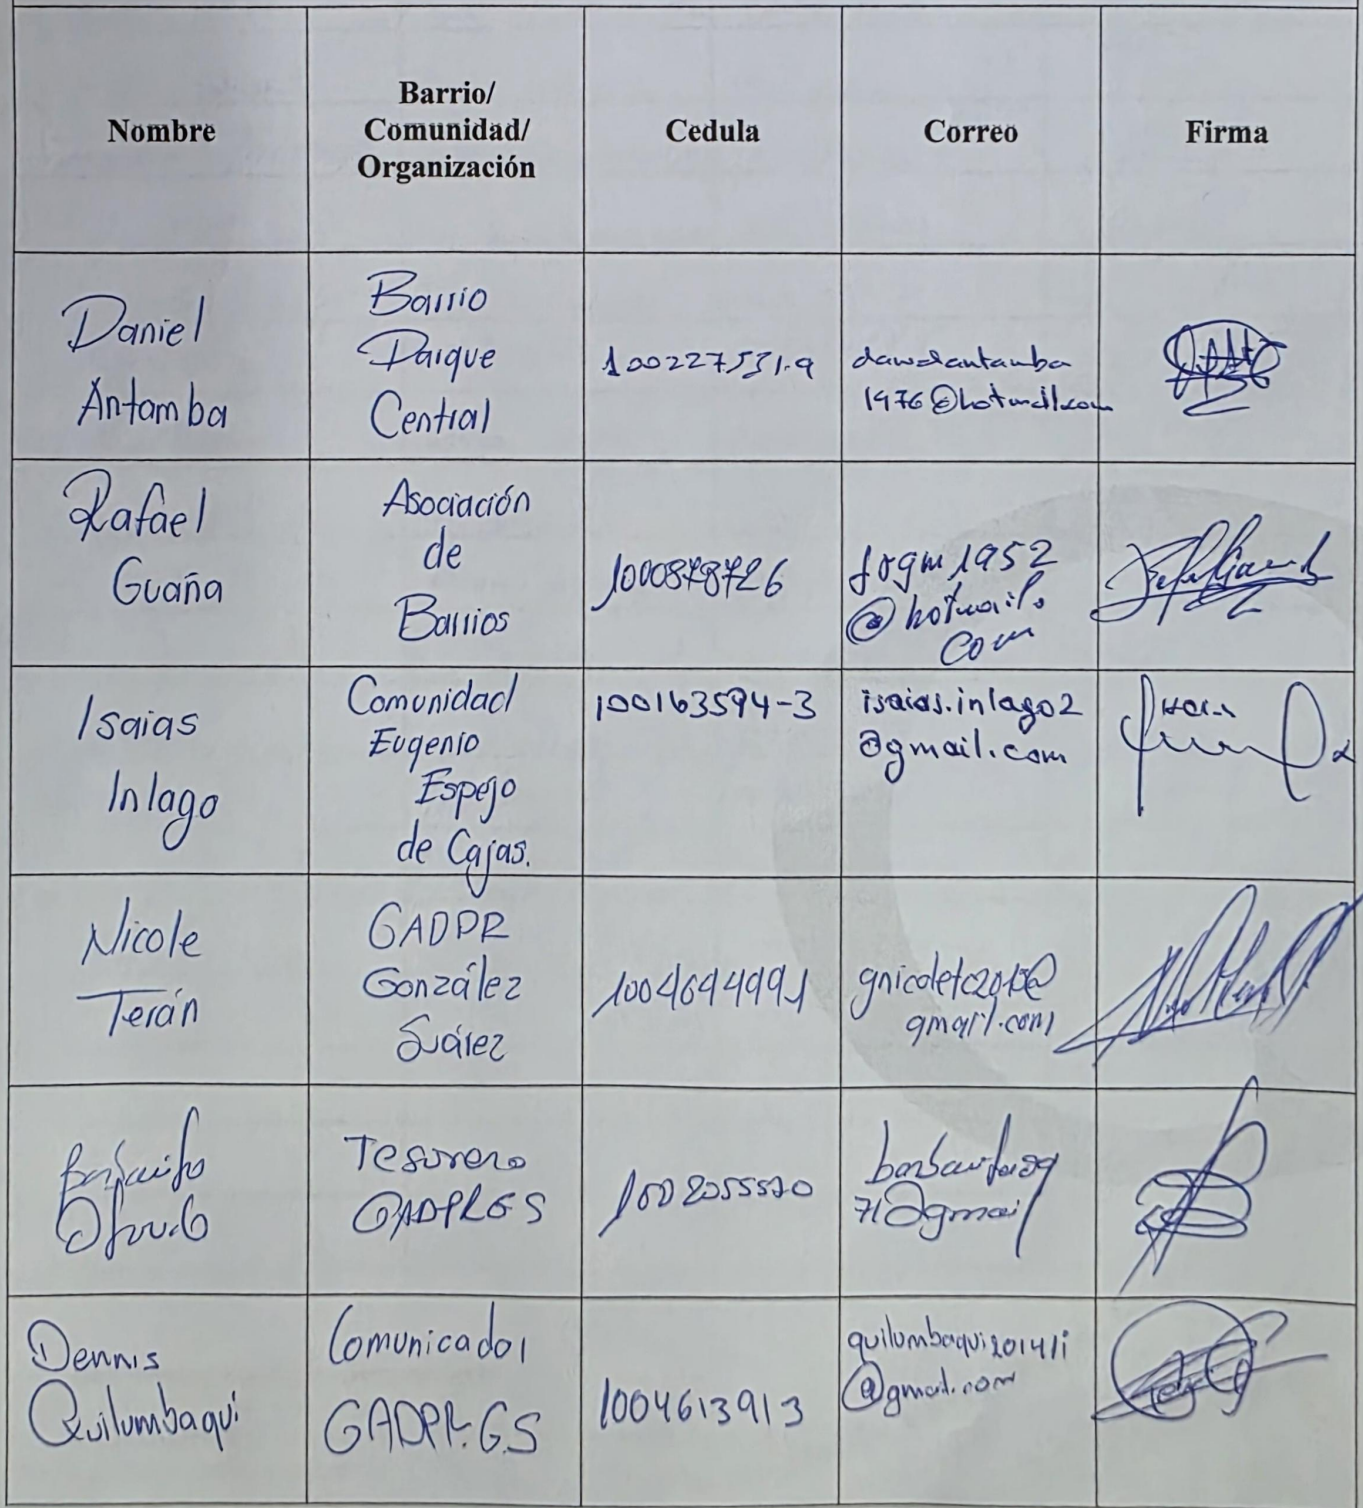 Nombre
Barrio/
Comunidad/
Organización
Cedula
Correo
Firma
Daniel
Antamba
Barrio
Parque
Central
100227531-9
1976@hotmail.com
Rafael
Guaña
Asociación
de
Barrios
1000878726
frgm1952
@hotmail.
com
Isaias
Inlago
Comunidad
Eugenio
Espejo
de Cajas.
100163594-3
isaias.inlago2
@gmail.com
Nicole
Terán
GADPR
González
Suárez
1004694991
gmail.com
Tesorero
GADPRGS
71@gmail
Dennis
Quilumbaqui
Comunicador
GADPR.G.S
1004613913
quilumbaqui2014li
@gmail.com